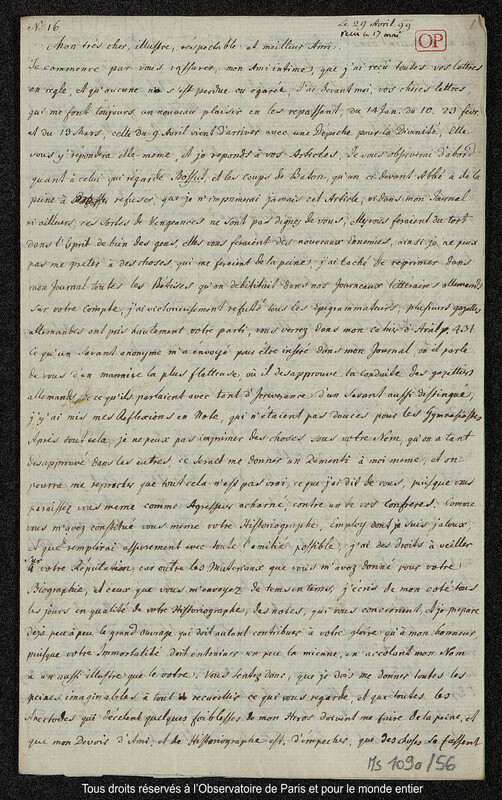 No. 16
Le 29 Avril 99
reçu le 17 mai
OP
Mon très cher, illustre, respectable et meilleur Ami.
Je commence par vous rassurer, mon Ami intime, que j'ai reçu toutes vos lettres
en regle, et qu'aucune ne s'est perdue ou egarée, j'ai devant moi, vos cheres lettres
qui me font toujours un nouveau plaisir en les repassant, du 14 Jan. du 10. 23 fevr.
et du 13 Mars, celle du 9 Avril vient d'arriver avec une Depeche pour la Divinité, Elle
vous y repondra elle meme, et je reponds à vos Articles. Je vous observerai d'abord
quant à celui qui regarde Bossut, et les coups de Baton, qu'un ci devant Abbé a de la
peine à refuser, que je n'imprimerai jamais cet Article, ni dans mon Journal
ni ailleurs, ces sortes de Vengeances ne sont pas dignes de vous, elles vous feraient du tort
dans l'Esprit de bien des gens, elles vous feraient des nouveaux Ennemies, ainsi je ne peux
pas me preter à des choses, qui me feraient de la peine; j'ai taché de reprimer dans
mon Journal toutes les Betises qu'on debititait dans nos Journeaux litteraires allemands
sur votre Compte, j'ai victorieusement refuté tous les Epigrammateurs, plusieurs gazettes
allemandes ont pris hautement votre parti, vous verez dans mon cahier d'Avril p. 431
ce qu'un Savant anonyme m'a envoyé pour être inseré dans mon Journal, où il parle
de vous d'un manniere la plus flatteuse, où il desapprouve la conduite des gazettiers
allemands, de ce qu'ils parlaient avec tant d'Irreverance d'un Savant aussi distingué,
j'y ai mis mes Reflexions en Note, qui n'étaient pas douces pour les
Après tout cela, je ne peux pas imprimer des choses sous votre Nom, qu'on a tant
desapprouvé dans les autres, ce serait me donner un Dementi à moi meme, et on
pourra me reprocher que tout cela n'est pas vrai, ce que j'ai dit de vous, puisque vous
paraissez vous meme comme Agresseur acharné, contre un de vos Confreres. Comme
vous m'avez constitué vous meme votre Historiographe, Employ dont je suis jaloux,
et que remplirai assurement avec toute l'amitié possible; j'ai des droits à veiller
sur votre Reputation, car outre les Materiaux que vous m'avez donné pour votre
Biographie, et ceux que vous m'envoyez de tems en tems, j'écris de mon coté tous
les jours en qualité de votre Historiographe, des notes, qui vous concernent, et je prepare
dejà peu à peu le grand ouvrage qui doit autant contribuer à votre gloire qu'à mon honneur,
puisque votre Immortalité doit entrainer un peu la mienne, en accolant mon Nom
à un aussi illustre que le votre. Vous sentez donc, que je dois me donner toutes les
peines imaginables à tout recueillir ce qui vous regarde, et que toutes les
Anecdotes qui decelent quelques foiblesses de mon Heros doivent me faire de la peine, et
que mon Devoir d'Ami, et de Historiographe est, d'empecher, que des choses se fassent
Ms 1090/56
Tous droits réservés à l'Observatoire de Paris et pour le monde entier